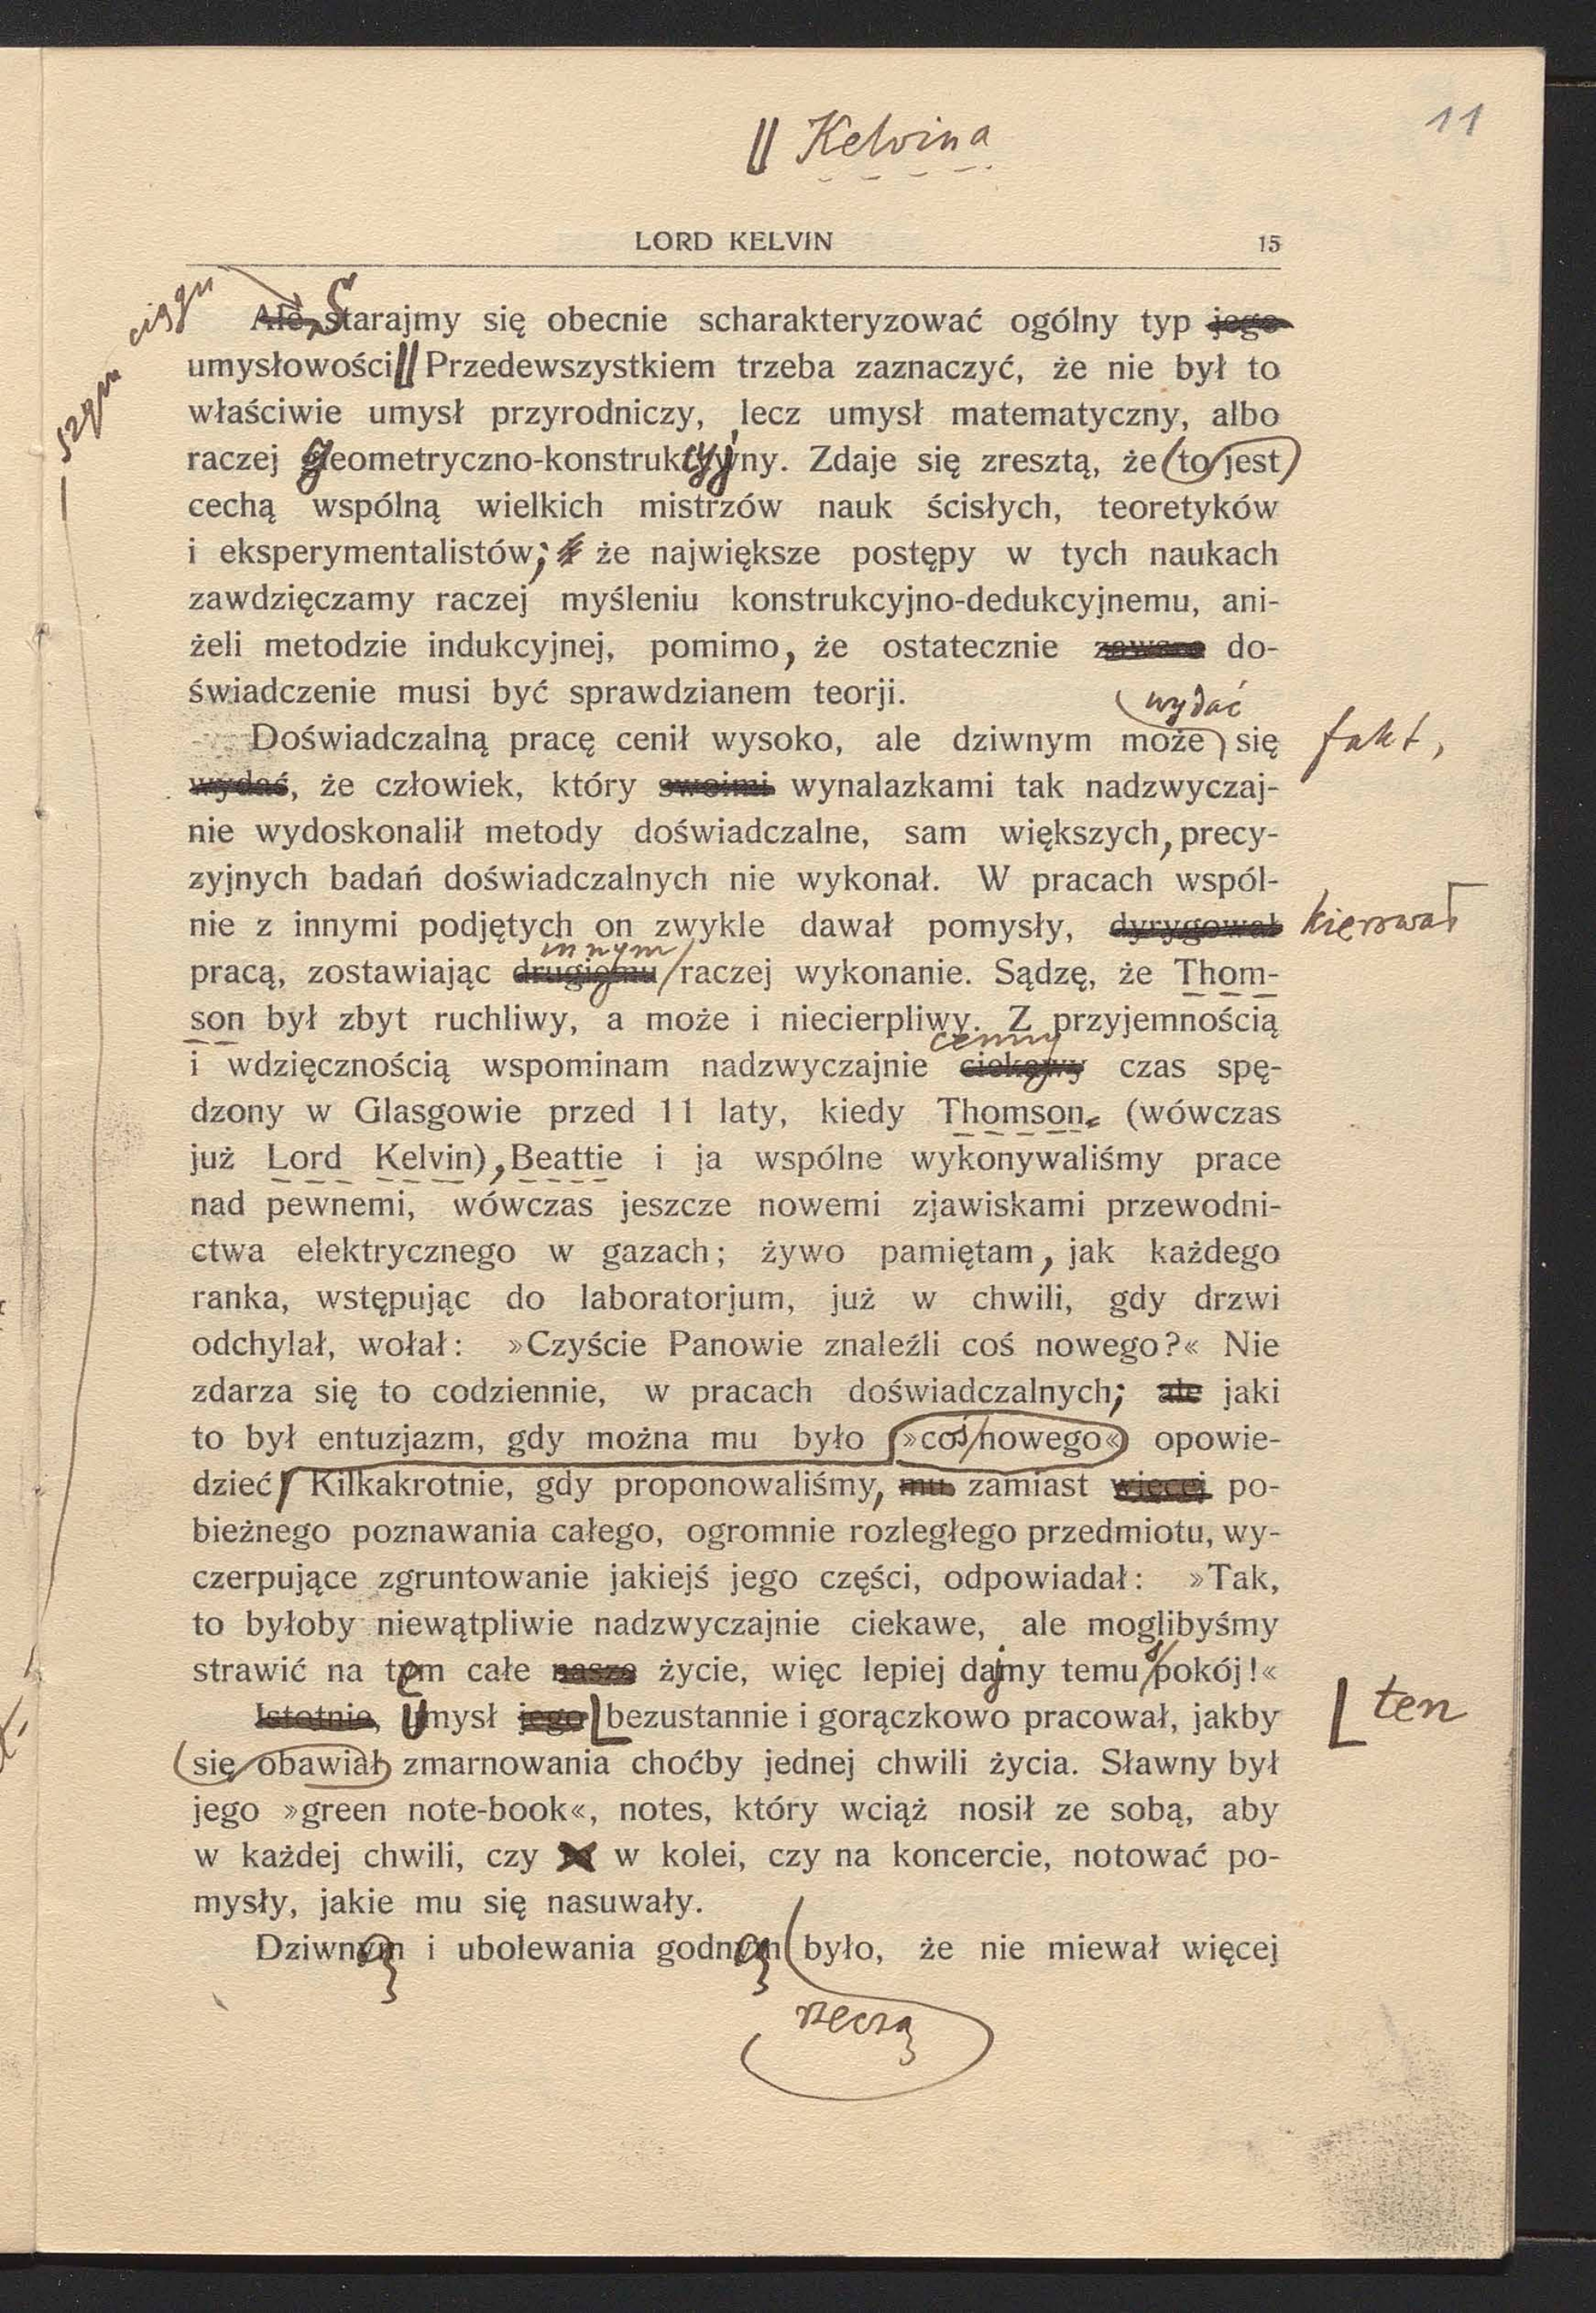 11
|| Kelvina
LORD KELVIN 15
ciągu
Ale, Starajmy się obecnie scharakteryzować ogólny typ jego
umysłowości || Przedewszystkiem trzeba zaznaczyć, że nie był to
właściwie umysł przyrodniczy, lecz umysł matematyczny, albo
raczej geometryczno-konstrukcyjny. Zdaje się zresztą, że to jest
cechą wspólną wielkich mistrzów nauk ścisłych, teoretyków
i eksperymentalistów; że największe postępy w tych naukach
zawdzięczamy raczej myśleniu konstrukcyjno-dedukcyjnemu, ani-
żeli metodzie indukcyjnej, pomimo, że ostatecznie zawsze do-
świadczenie musi być sprawdzianem teorji.
wydać
Doświadczalną pracę cenił wysoko, ale dziwnym może się fakt,
wydać, że człowiek, który swoimi wynalazkami tak nadzwyczaj-
nie wydoskonalił metody doświadczalne, sam większych, precy-
zyjnych badań doświadczalnych nie wykonał. W pracach wspól-
nie z innymi podjętych on zwykle dawał pomysły, dyrygował kierował
innym
pracą, zostawiając drugiemu raczej wykonanie. Sądzę, że Thom-
son był zbyt ruchliwy, a może i niecierpliwy. Z przyjemnością
cenny
i wdzięcznością wspominam nadzwyczajnie ciekawy czas spę-
dzony w Glasgowie przed 11 laty, kiedy Thomson (wówczas
już Lord Kelvin), Beattie i ja wspólne wykonywaliśmy prace
nad pewnemi, wówczas jeszcze nowemi zjawiskami przewodni-
ctwa elektrycznego w gazach; żywo pamiętam, jak każdego
ranka, wstępując do laboratorjum, już w chwili, gdy drzwi
odchylał, wołał: »Czyście Panowie znaleźli coś nowego?« Nie
zdarza się to codziennie, w pracach doświadczalnych; ale jaki
to był entuzjazm, gdy można mu było »coś nowego« opowie-
dzieć! Kilkakrotnie, gdy proponowaliśmy, mu zamiast więcej po-
bieżnego poznawania całego, ogromnie rozległego przedmiotu, wy-
czerpujące zgruntowanie jakiejś jego części, odpowiadał: »Tak,
to byłoby niewątpliwie nadzwyczajnie ciekawe, ale moglibyśmy
strawić na tem całe nasze życie, więc lepiej dajmy temu spokój!«
Istotnie, Umysł jego bezustannie i gorączkowo pracował, jakby ten
się obawiał zmarnowania choćby jednej chwili życia. Sławny był
jego »green note-book«, notes, który wciąż nosił ze sobą, aby
w każdej chwili, czy w kolei, czy na koncercie, notować po-
mysły, jakie mu się nasuwały.
Dziwną i ubolewania godną było, że nie miewał więcej
rzeczą